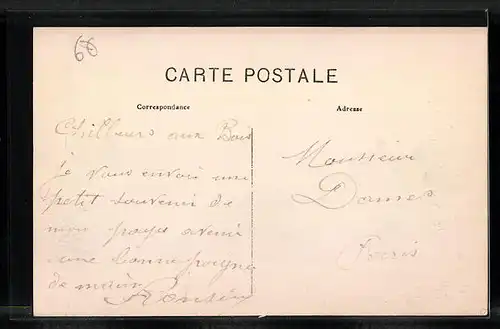 65
CARTE POSTALE
Correspondance
Adresse
Chilleurs aux Bois
je vous envois une
petit souvenir de
mon pays avenir
une bonne poigne
de main
Monsieur
Dames
Paris